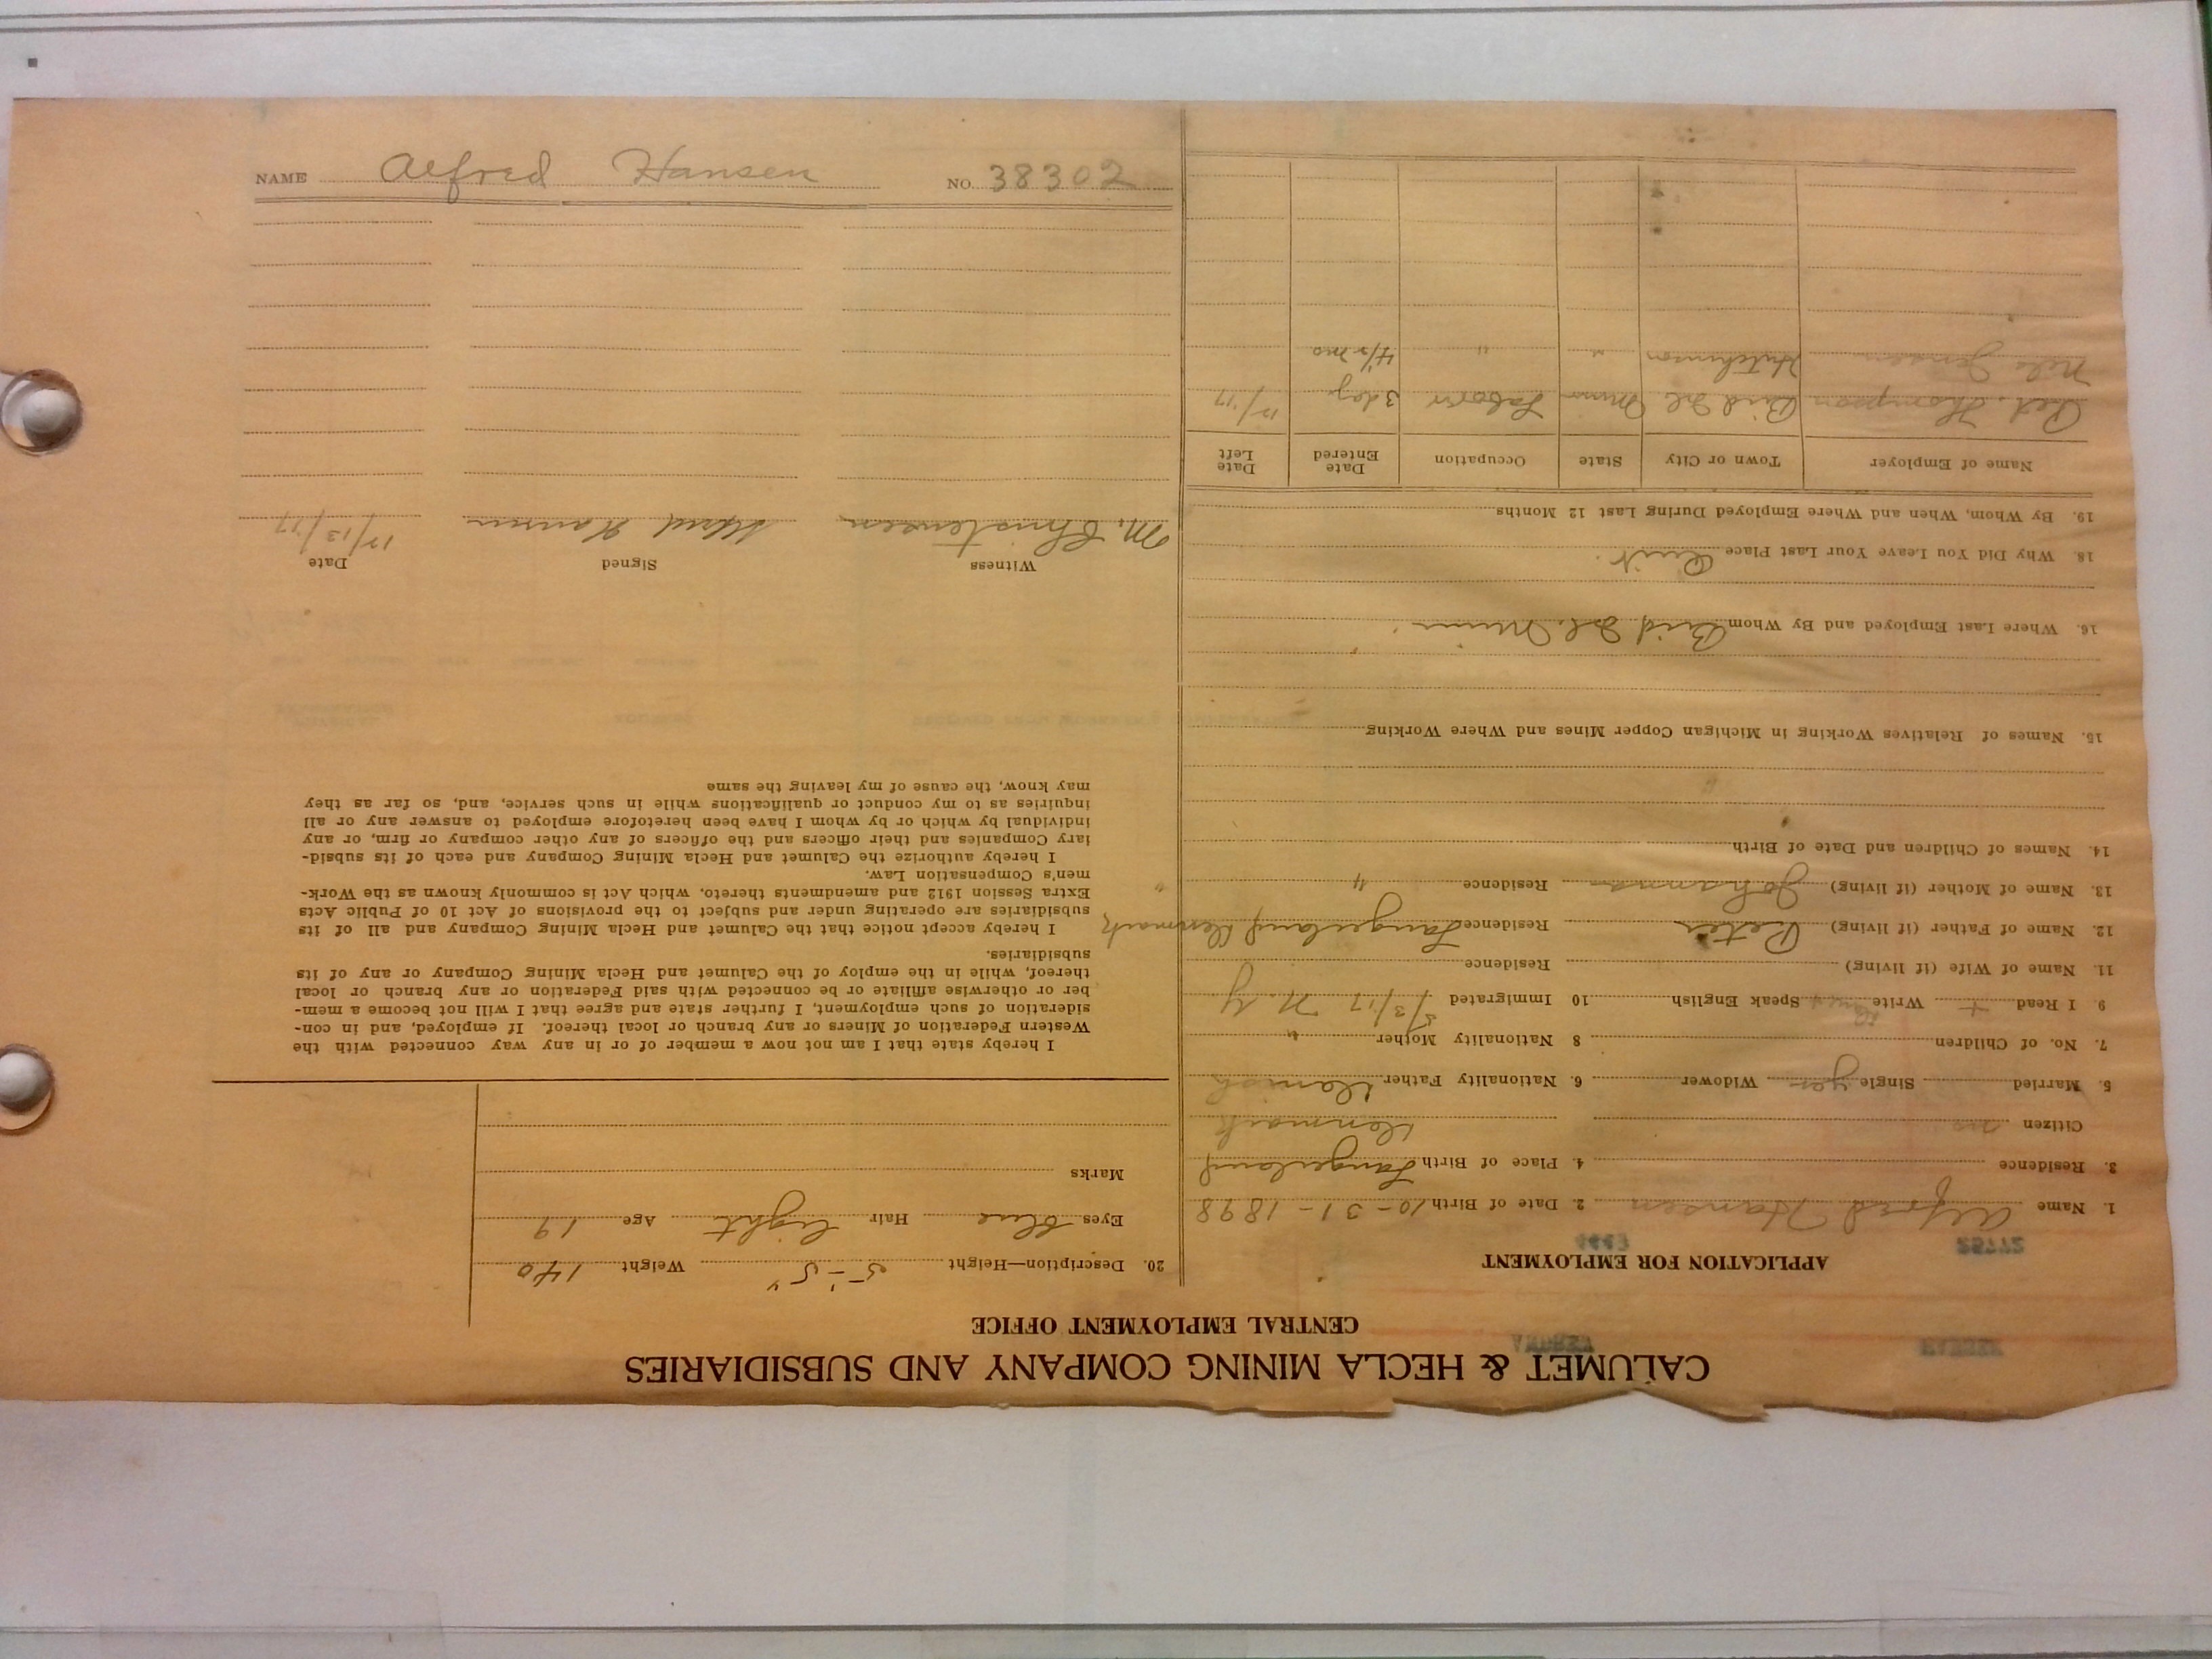 CALUMET & HECLA MINING COMPANY AND SUBSIDIARIES
CENTRAL EMPLOYMENT OFFICE
APPLICATION FOR EMPLOYMENT
25772
1. Name Alfred Hansen 2. Date of Birth 10-31-1898
3. Residence 4. Place of Birth Langeland
Citizen no Denmark
5. Married Single yes Widower 6. Nationality Father Danish
7. No. of Children 8 Nationality Mother "
9. I Read + Write Speak English 10 Immigrated 5/3/17 N. Y
11. Name of Wife (if living) Residence
12. Name of Father (if living) Peter Residence Langeland Denmark
13. Name of Mother (if living) Johanna Residence " "
14. Names of Children and Date of Birth
15. Names of Relatives Working in Michigan Copper Mines and Where Working
16. Where Last Employed and By Whom Bird Isl. Minn
18. Why Did You Leave Your Last Place Quit
19. By Whom, When and Where Employed During Last 12 Months
Name of Employer Town or City State Occupation Date Entered Date Left
Pet. Thompson Bird Isl. Minn Laborer 3 day 12/17
Nels Jensen Hutchinson " " 4½ mo
20. Description—Height 5'-5" Weight 140
Eyes blue Hair light Age 19
Marks
I hereby state that I am not now a member of or in any way connected with the
Western Federation of Miners or any branch or local thereof. If employed, and in con-
sideration of such employment, I further state and agree that I will not become a mem-
ber or otherwise affiliate or be connected with said Federation or any branch or local
thereof, while in the employ of the Calumet and Hecla Mining Company or any of its
subsidiaries.
I hereby accept notice that the Calumet and Hecla Mining Company and all of its
subsidiaries are operating under and subject to the provisions of Act 10 of Public Acts
Extra Session 1912 and amendments thereto, which Act is commonly known as the Work-
men's Compensation Law.
I hereby authorize the Calumet and Hecla Mining Company and each of its subsid-
iary Companies and their officers and the officers of any other company or firm, or any
individual by which or by whom I have been heretofore employed to answer any or all
inquiries as to my conduct or qualifications while in such service, and, so far as they
may know, the cause of my leaving the same
Witness Signed Date
M. Christensen Alfred Hansen 12/13/17
NAME Alfred Hansen NO. 38302